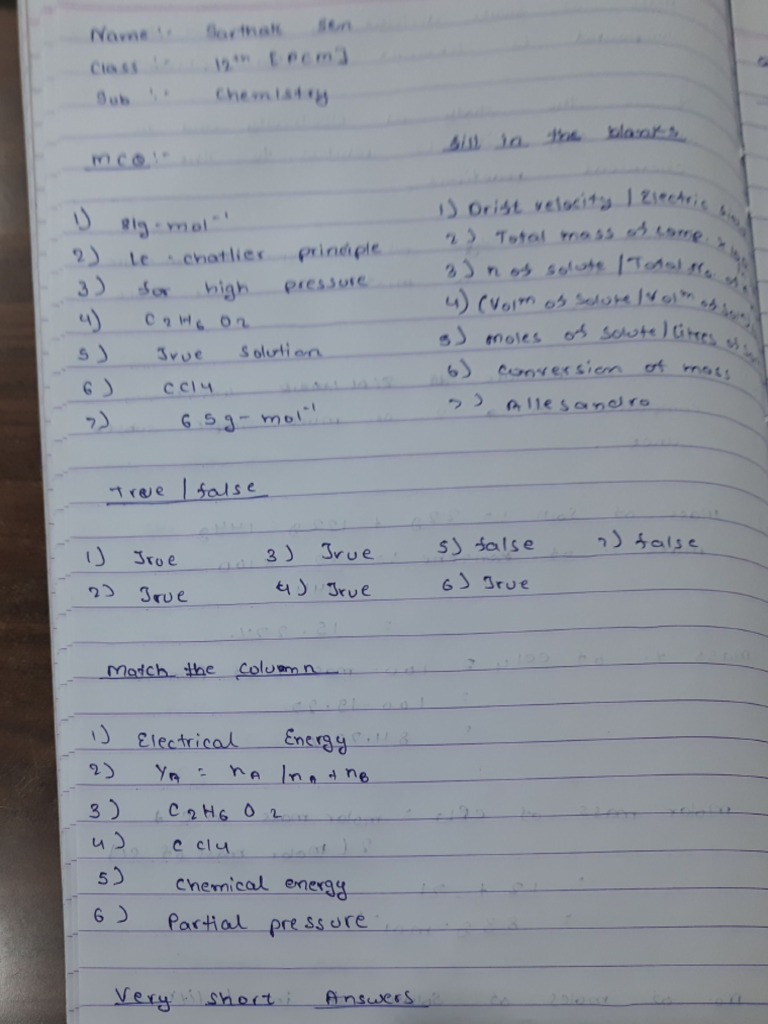 Name :- Sarthak Sen
Class :- 12th [PCM]
Sub :- Chemistry
MCQ :-
fill in the blanks
1) 81g-mol⁻¹
2) Le-chatlier principle
3) for high pressure
4) C2H6O2
5) True solution
6) CCl4
7) 65g-mol⁻¹
1) Drift velocity / Electric
2) Total mass of
3) n of solute / Total No. of
4) (Volm of solute / Volm of
5) moles of solute / litres of
6) conversion of mass
7) Allesandro
True / false
1) True 3) True 5) false 7) false
2) True 4) True 6) True
Match the column
1) Electrical Energy
2) YA = nA / nA + nB
3) C2H6O2
4) CCl4
5) Chemical energy
6) Partial pressure
Very short Answers